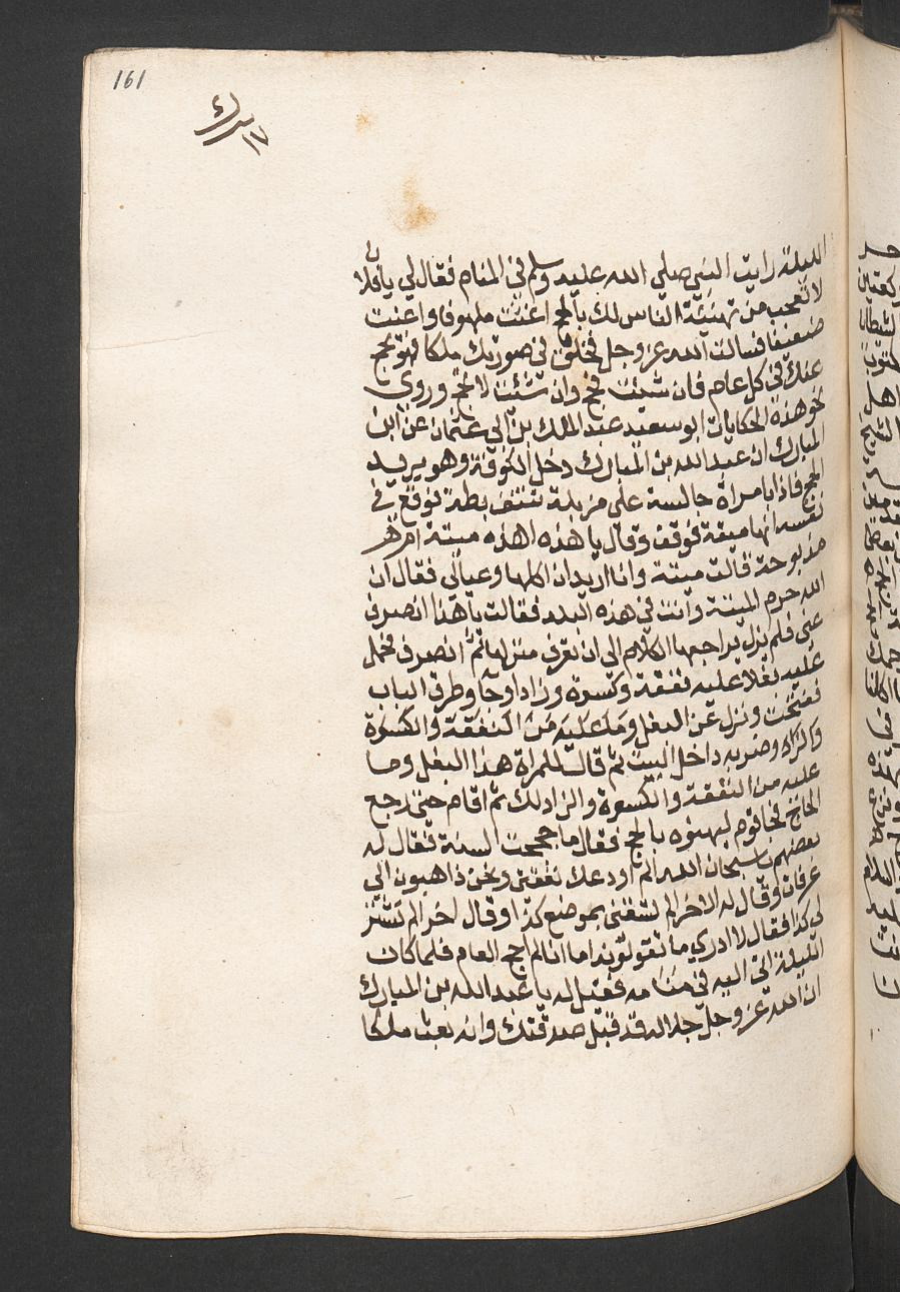 161
الليلة رايت النبي صلي الله عليه وسلم في المنام فقال لي يا فلان
لا تعجب من تهنئة الناس لك بالحج اغثت ملهوفا واعنت
ضعيفا فسالت الله عز وجل فخلق في صورتك ملكا فهو يحج
عنك في كل عام فان شئت فحج وان شئت لا تحج وروي
نحو هذه الحكايات ابو سعيد عبد الملك بن ابي عثمان عن ابن
المبارك ان عبد الله بن المبارك دخل الكوفة وهو يريد
الحج فاذا بامراة جالسة علي مزبلة تنتف بطة فوقع في
نفسه انها ميتة فوقف وقال يا هذه اهذه ميتة ام
مذبوحة قالت ميتة وانا اريد ان اكلها وعيالي فقال ان
الله حرم الميتة وانت في هذه البلد فقالت يا هذا انصرف
عني فلم يزل يراجعها الكلام الي ان تعرف منزلها ثم انصرف فحمل
علي بغلا عليه نفقة وكسوة وزادا وجا وطرق الباب
ففتحت ونزل عن البغل وما عليه من النفقة والكسوة
والزاد وضربه داخل البيت ثم قال للمراة هذا البغل وما
عليه من النفقة والكسوة والزاد لك ثم اقام حتي رجع
الحاج فجا قوم ليهنوه بالحج فقال ما حججت السنة فقال له
بعضهم يا سبحان الله الم اودعك نفقتي ونحن ذاهبون الي
عرفات وقال له الاخر الم تسقني بموضع كذا وقال اخر الم تشتر
لي كذا فقال لا ادري ما تقولون اما انا لم احج العام فلما كان
الليلة اتي اليه في منامه فقيل له يا عبد الله بن المبارك
ان الله عز وجل جلاله قد قبل صدقتك وانه بعث ملكا